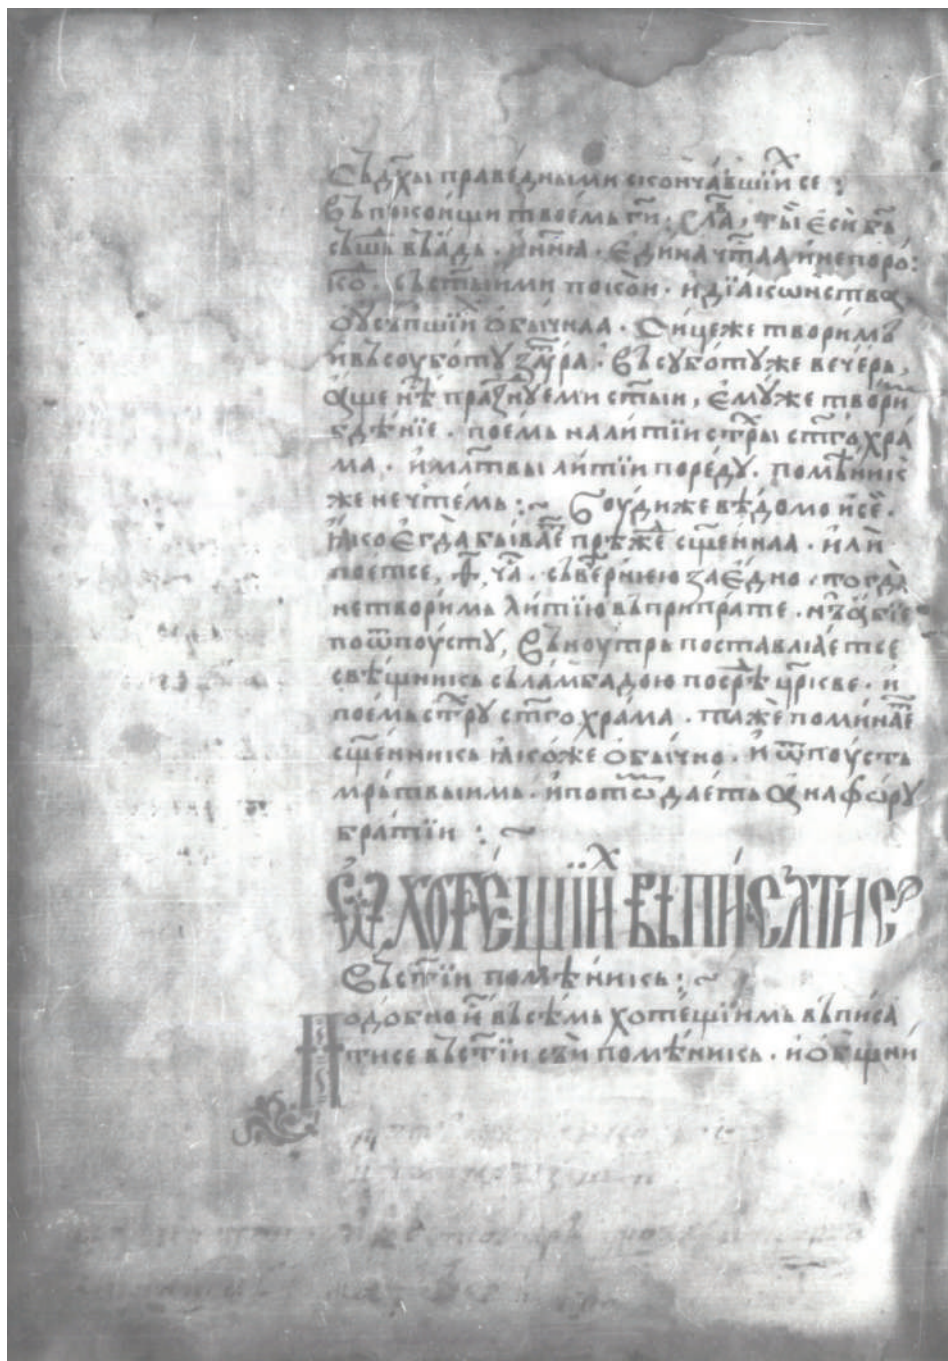 Съ дх҃ы праведными скончавшїих се :
Въ покоищи твоемь гд҃и · сла҃в · ты еси бг҃ь
сьшьⷣ въ адь · и нн҃ꙗ · едина чт҃аа и непоро:
ко · съ ст҃ыими покои · и дїаконства
оусьпшїих обычнаа · Сицеже творимь
и въ соуботу заⷹтра · Въ суботуже вечерь,
аще нѣⷭ празⷣнуеми ст҃ыи, емуже твориⷨ
бдѣнїе · поемь на литїи стⷯры ст҃го хра
ма · и мл҃твы литїи пореду · помѣникь
же не чтемь :~ Боуди же вѣдомо и се ·
ꙗко егда бываеⷮ прѣжⷣе сщ҃еннаа · или
поетсе, ѳ҃, чⷭа · съ вечернею заедно · тогда
не творимь литїю въ припрате · нь абїе
по ѿпоусту, Въноутрь поставлꙗетсе
свѣщникь съ ламбадою посрѣⷣ цр҃кве · и
поемь стⷯру ст҃го храма · таже поминаеⷮ
сщ҃енникь ꙗкоже обычно · и ѿпоусть
мрьтвыимь · и потоⷨ даеть анафору
братїи : ~
Ѡ хотещїиⷯ въписатисе
Въ ст҃їи помѣникь : ~
Подобно еⷭ и въсѣмь хотещїимь въписа
тисе въ ст҃їи съи помѣникь · и общни